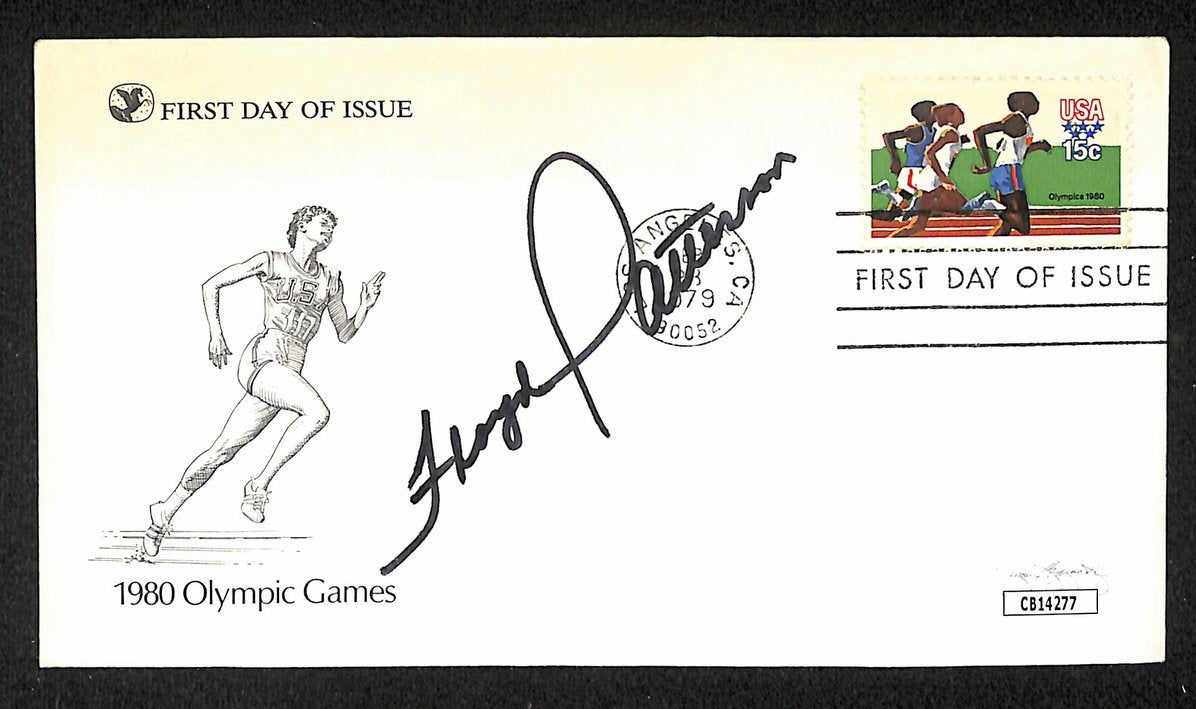 FIRST DAY OF ISSUE
USA
15c
Olympics 1980
FIRST DAY OF ISSUE
ANG S, CA
1979
90052
Floyd Patterson
U.S.
1980 Olympic Games
CB14277